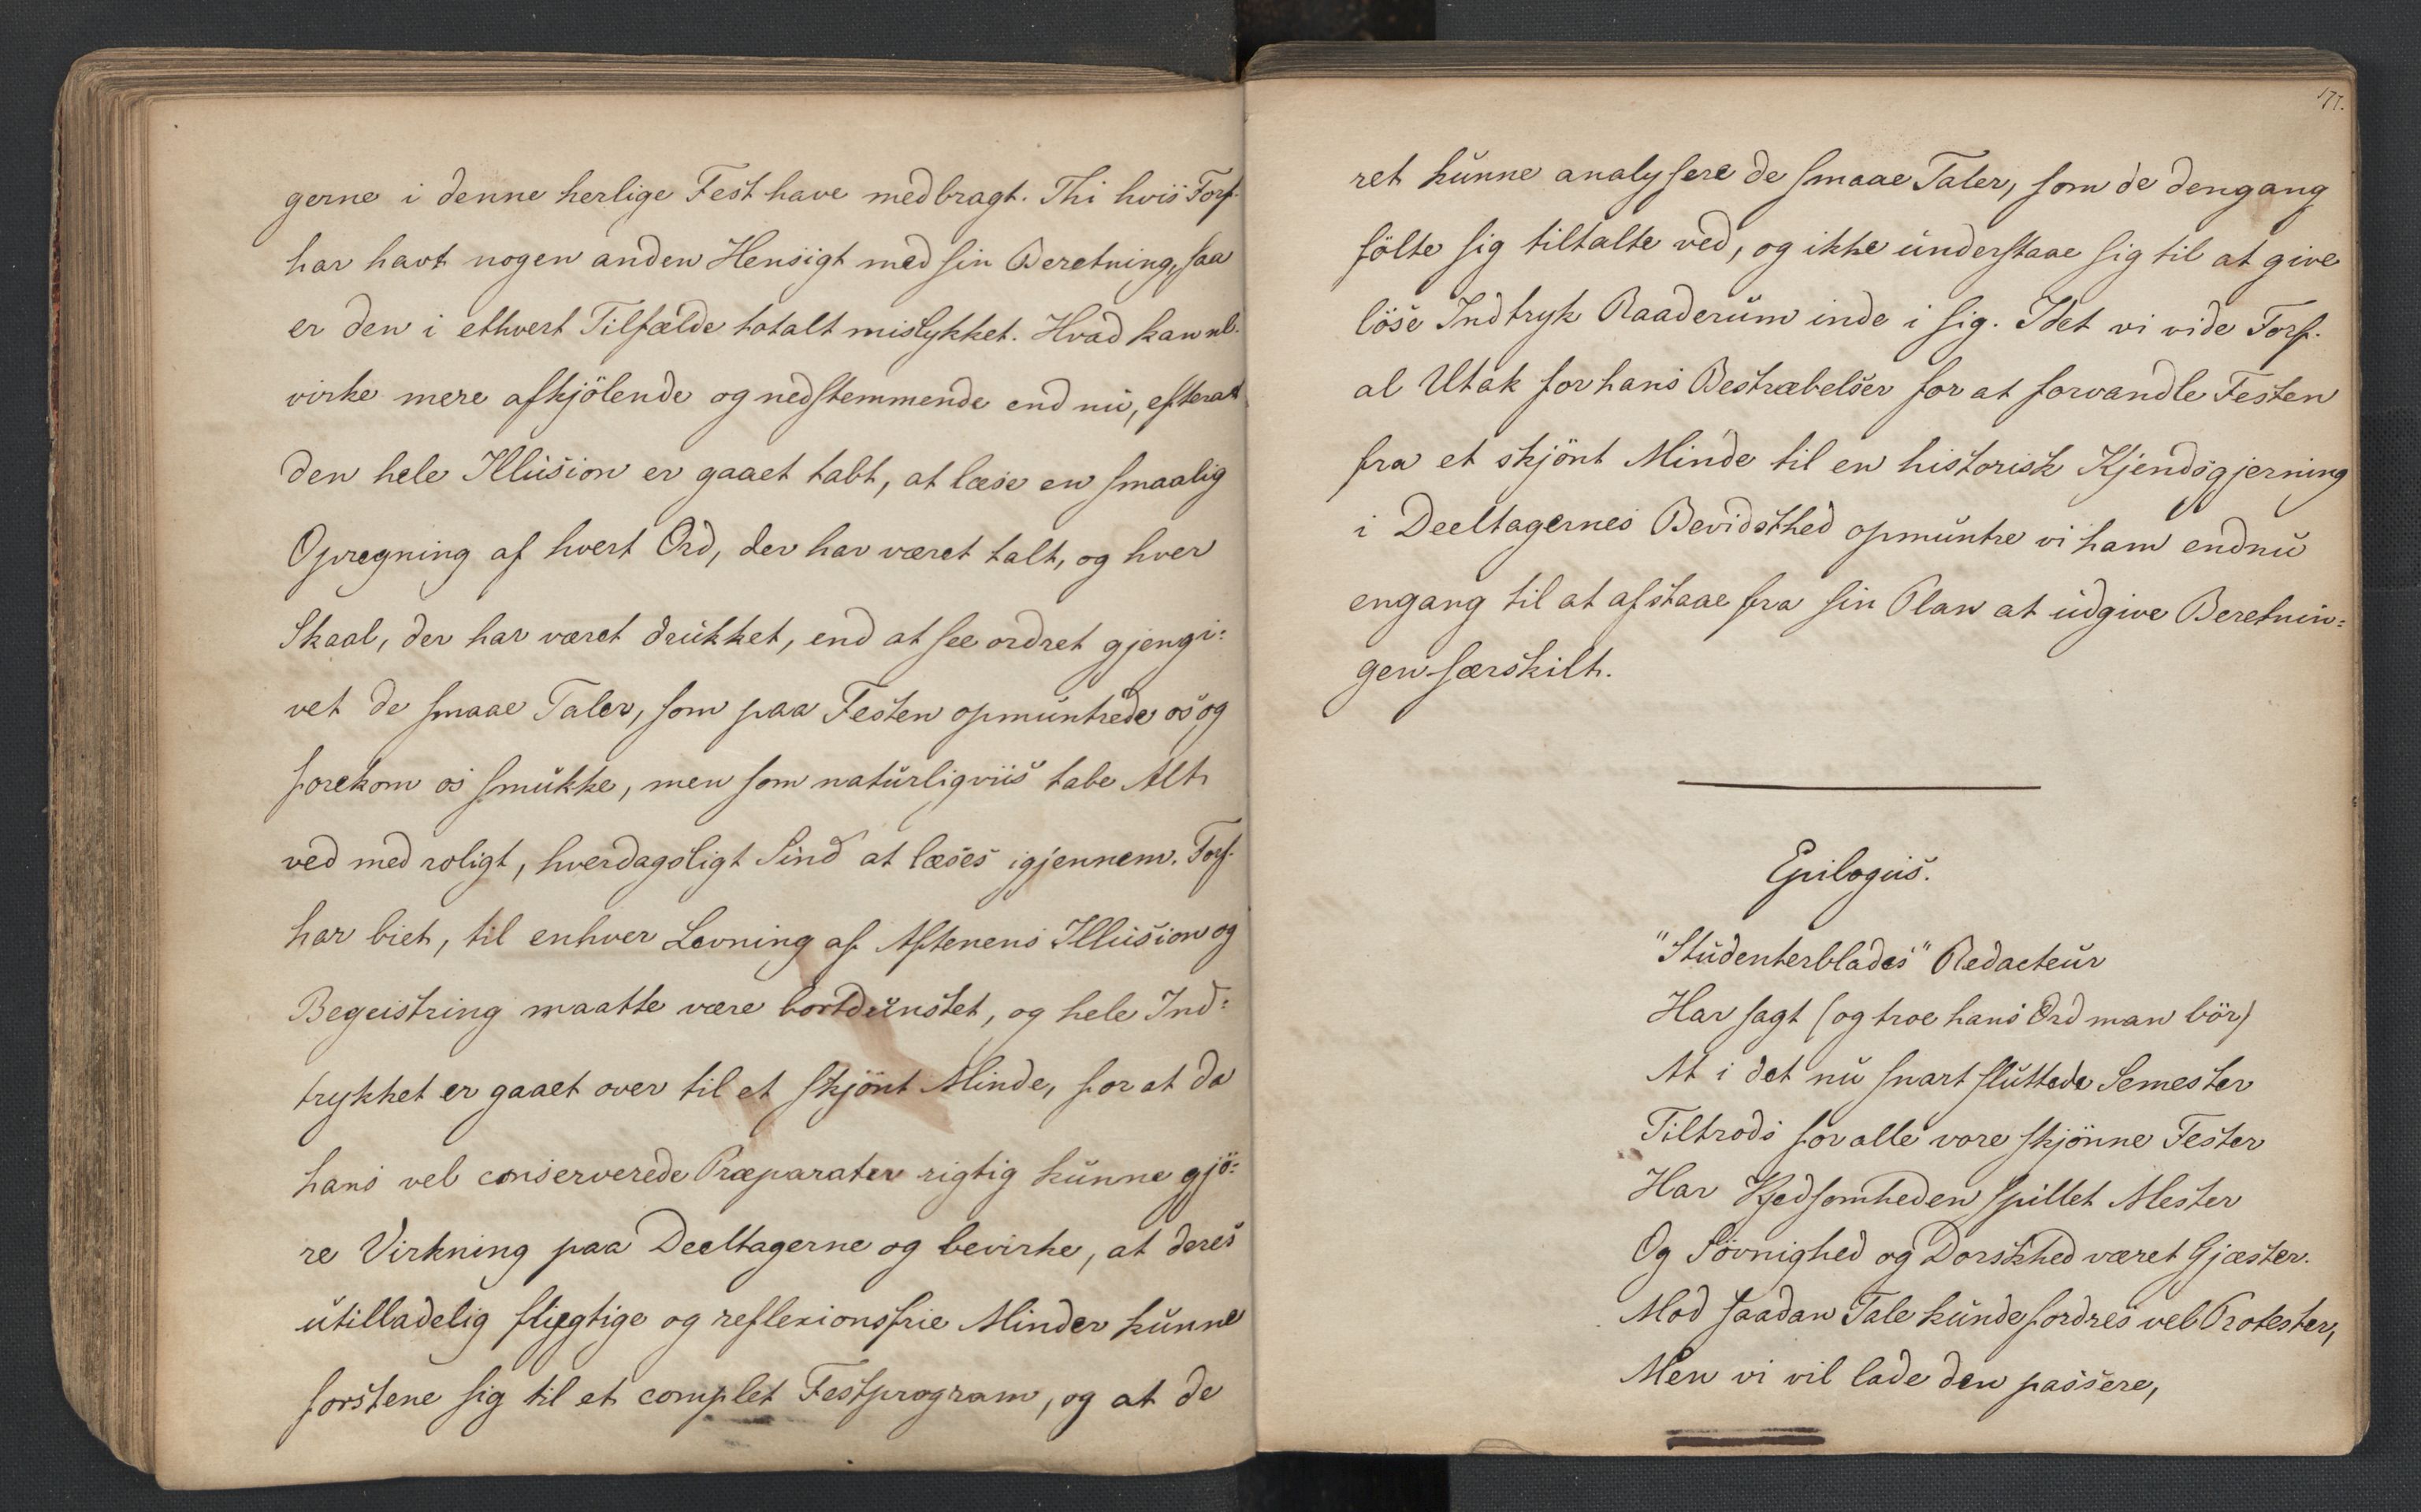 gerne i denne herlige Fest have medbragt. Thi hvis Forf.
har havt nogen anden Hensigt med sin Beretning, saa
er den i ethvert Tilfælde totalt mislykket. Hvad kan vel
virke mere afkjölende og nedstemmende end nu, efterat
den hele Illusion er gaaet tabt, at læse en smaalig
Opregning af hvert Ord, der har været talt, og hver
Skaal, der har været drukket, end at see ordret gjengi-
vet de smaae Taler, som paa Festen opmuntrede os og
forekom os smukke, men som naturligviis tabe Alt
ved med roligt, hverdagsligt Sind at læses igjennem. Forf.
har biet, til enhver Levning af Aftenens Illusion og
Begeistring maatte være bortdunstet, og hele Ind-
trykket er gaaet over til et skjönt Minde, for at da
hans vel conserverede Præparater rigtig kunne gjö-
re Virkning paa Deeltagerne og bevirke, at deres
utilladelig flygtige og reflexionsfrie Minder kunne
forstene sig til et complet Festprogram, og at de
177.
ret kunne analysere de smaae Taler, som de dengang
fölte sig tiltalte ved, og ikke understaae sig til at give
löse Indtryk Raaderum inde i sig. Idet vi vide Forf.
al Utak for hans Bestræbelser for at forvandle Festen
fra et skjönt Minde til en historisk Kjendsgjerning
i Deeltagernes Bevidsthed opmuntre vi ham endnu
engang til at afstaae fra sin Plan at udgive Beretnin-
gen særskilt.
Epilogus.
"Studenterblades" Redacteur
Har sagt (og troe hans Ord man bör)
At i det nu snart sluttede Semester
Tiltrods for alle vore skjönne Fester
Har Kjedsomheden spillet Mester
Og Sövnighed og Dorskhed været Gjæster.
Mod saadan Tale kunde fordres vel Protester,
Men vi vil lade den passere,